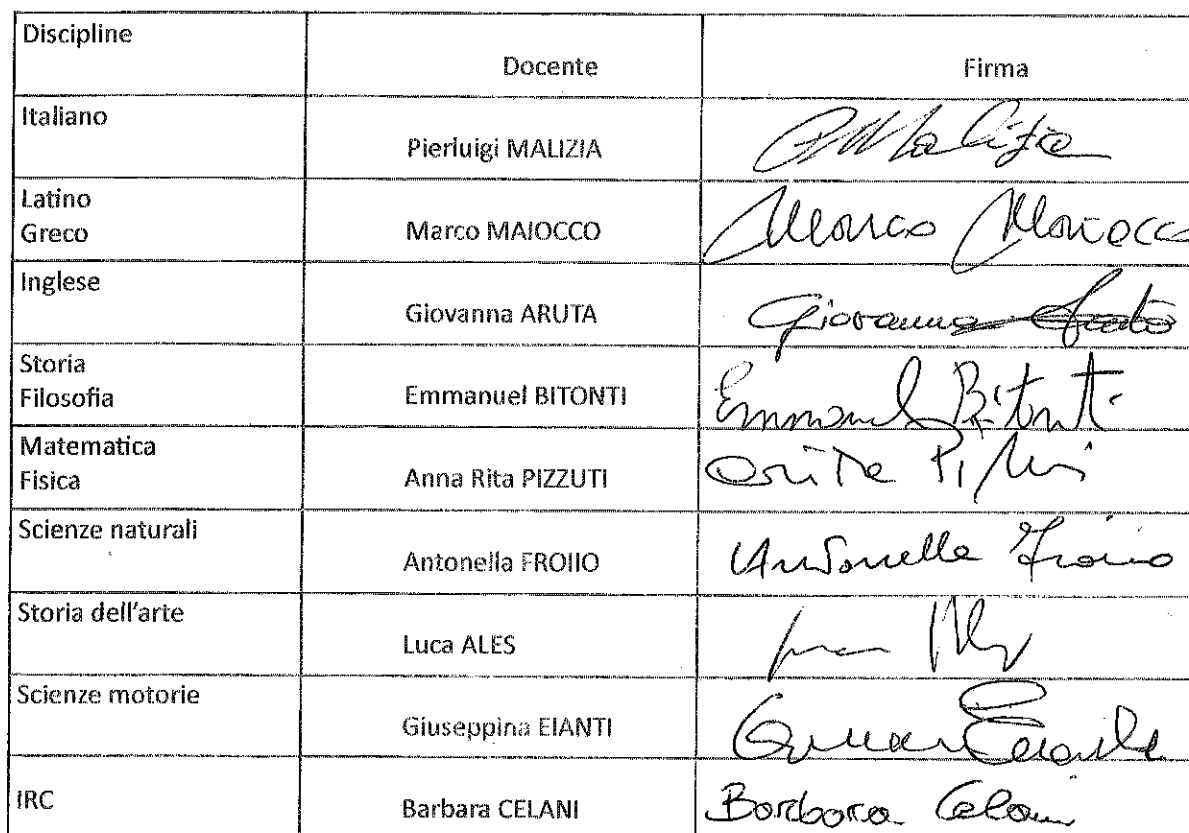 Discipline
Docente
Firma
Italiano
Pierluigi MALIZIA
PMalizia
Latino
Greco
Marco MAIOCCO
Marco Maiocco
Inglese
Giovanna ARUTA
Giovanna Aruta
Storia
Filosofia
Emmanuel BITONTI
Emmanuel Bitonti
Matematica
Fisica
Anna Rita PIZZUTI
Scienze naturali
Antonella FROIIO
Antonella Froiio
Storia dell'arte
Luca ALES
Scienze motorie
Giuseppina EIANTI
IRC
Barbara CELANI
Barbara Celani